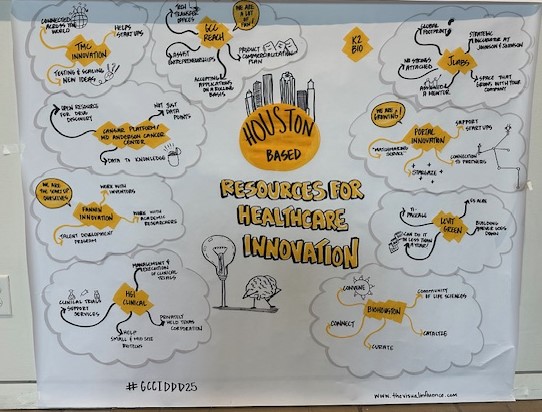 CONNECTED
ACROSS THE
WORLD
HELPS
STARTUPS
TMC
INNOVATION
TESTING & SCALING
NEW IDEAS
TECH
TRANSFER
OFFICES
GCC
REACH
WE ARE
A LOT
OF FUN!
ASSIST
ENTREPRENEURSHIPS
PRODUCT
COMMERCIALIZATION
PLAN
ACCEPTING
APPLICATIONS
ON A ROLLING
BASIS
K2
BIO
GLOBAL
FOOTPRINT
STRATEGIC
INCUBATOR AT
JOHNSON & JOHNSON
JLABS
NO STRINGS
ATTACHED
ASSIGNED
A MENTOR
SPACE THAT
GROWS WITH YOUR
COMPANY
OPEN RESOURCE
FOR DRUG
DISCOVERY
NOT JUST
DATA
POINTS
CANSAR PLATFORM/
MD ANDERSON CANCER
CENTER
DATA TO KNOWLEDGE
HOUSTON
BASED
RESOURCES FOR
HEALTHCARE
INNOVATION
WE ARE
GROWING!
SUPPORT
STARTUPS
PORTAL
INNOVATION
MATCHMAKING
SERVICE
CONNECTION
TO PARTNERS
STARGAZE
WE ARE
THE STARTUP
OURSELVES
WORK WITH
INVENTORS
FANNIN
INNOVATION
WORK WITH
ACADEMIC
RESEARCHERS
TALENT DEVELOPMENT
PROGRAM
LEVIT
GREEN
CAN DO IT
IN LESS THAN
A YEAR!
BUILDING
NEVER GOES
DOWN
MANAGEMENT &
EXECUTION
OF CLINICAL
TRIALS
CLINICAL TRIAL
SUPPORT
SERVICES
HGI
CLINICAL
PRIVATELY
HELD TEXAS
CORPORATION
HELP
SMALL & MID SIZE
BIOTECHS
CONVENE
COMMUNITY
OF LIFE SCIENCES
BIOHOUSTON
CONNECT
CATALYZE
CURATE
#GCCIDDD25
www.thevisualinfluence.com